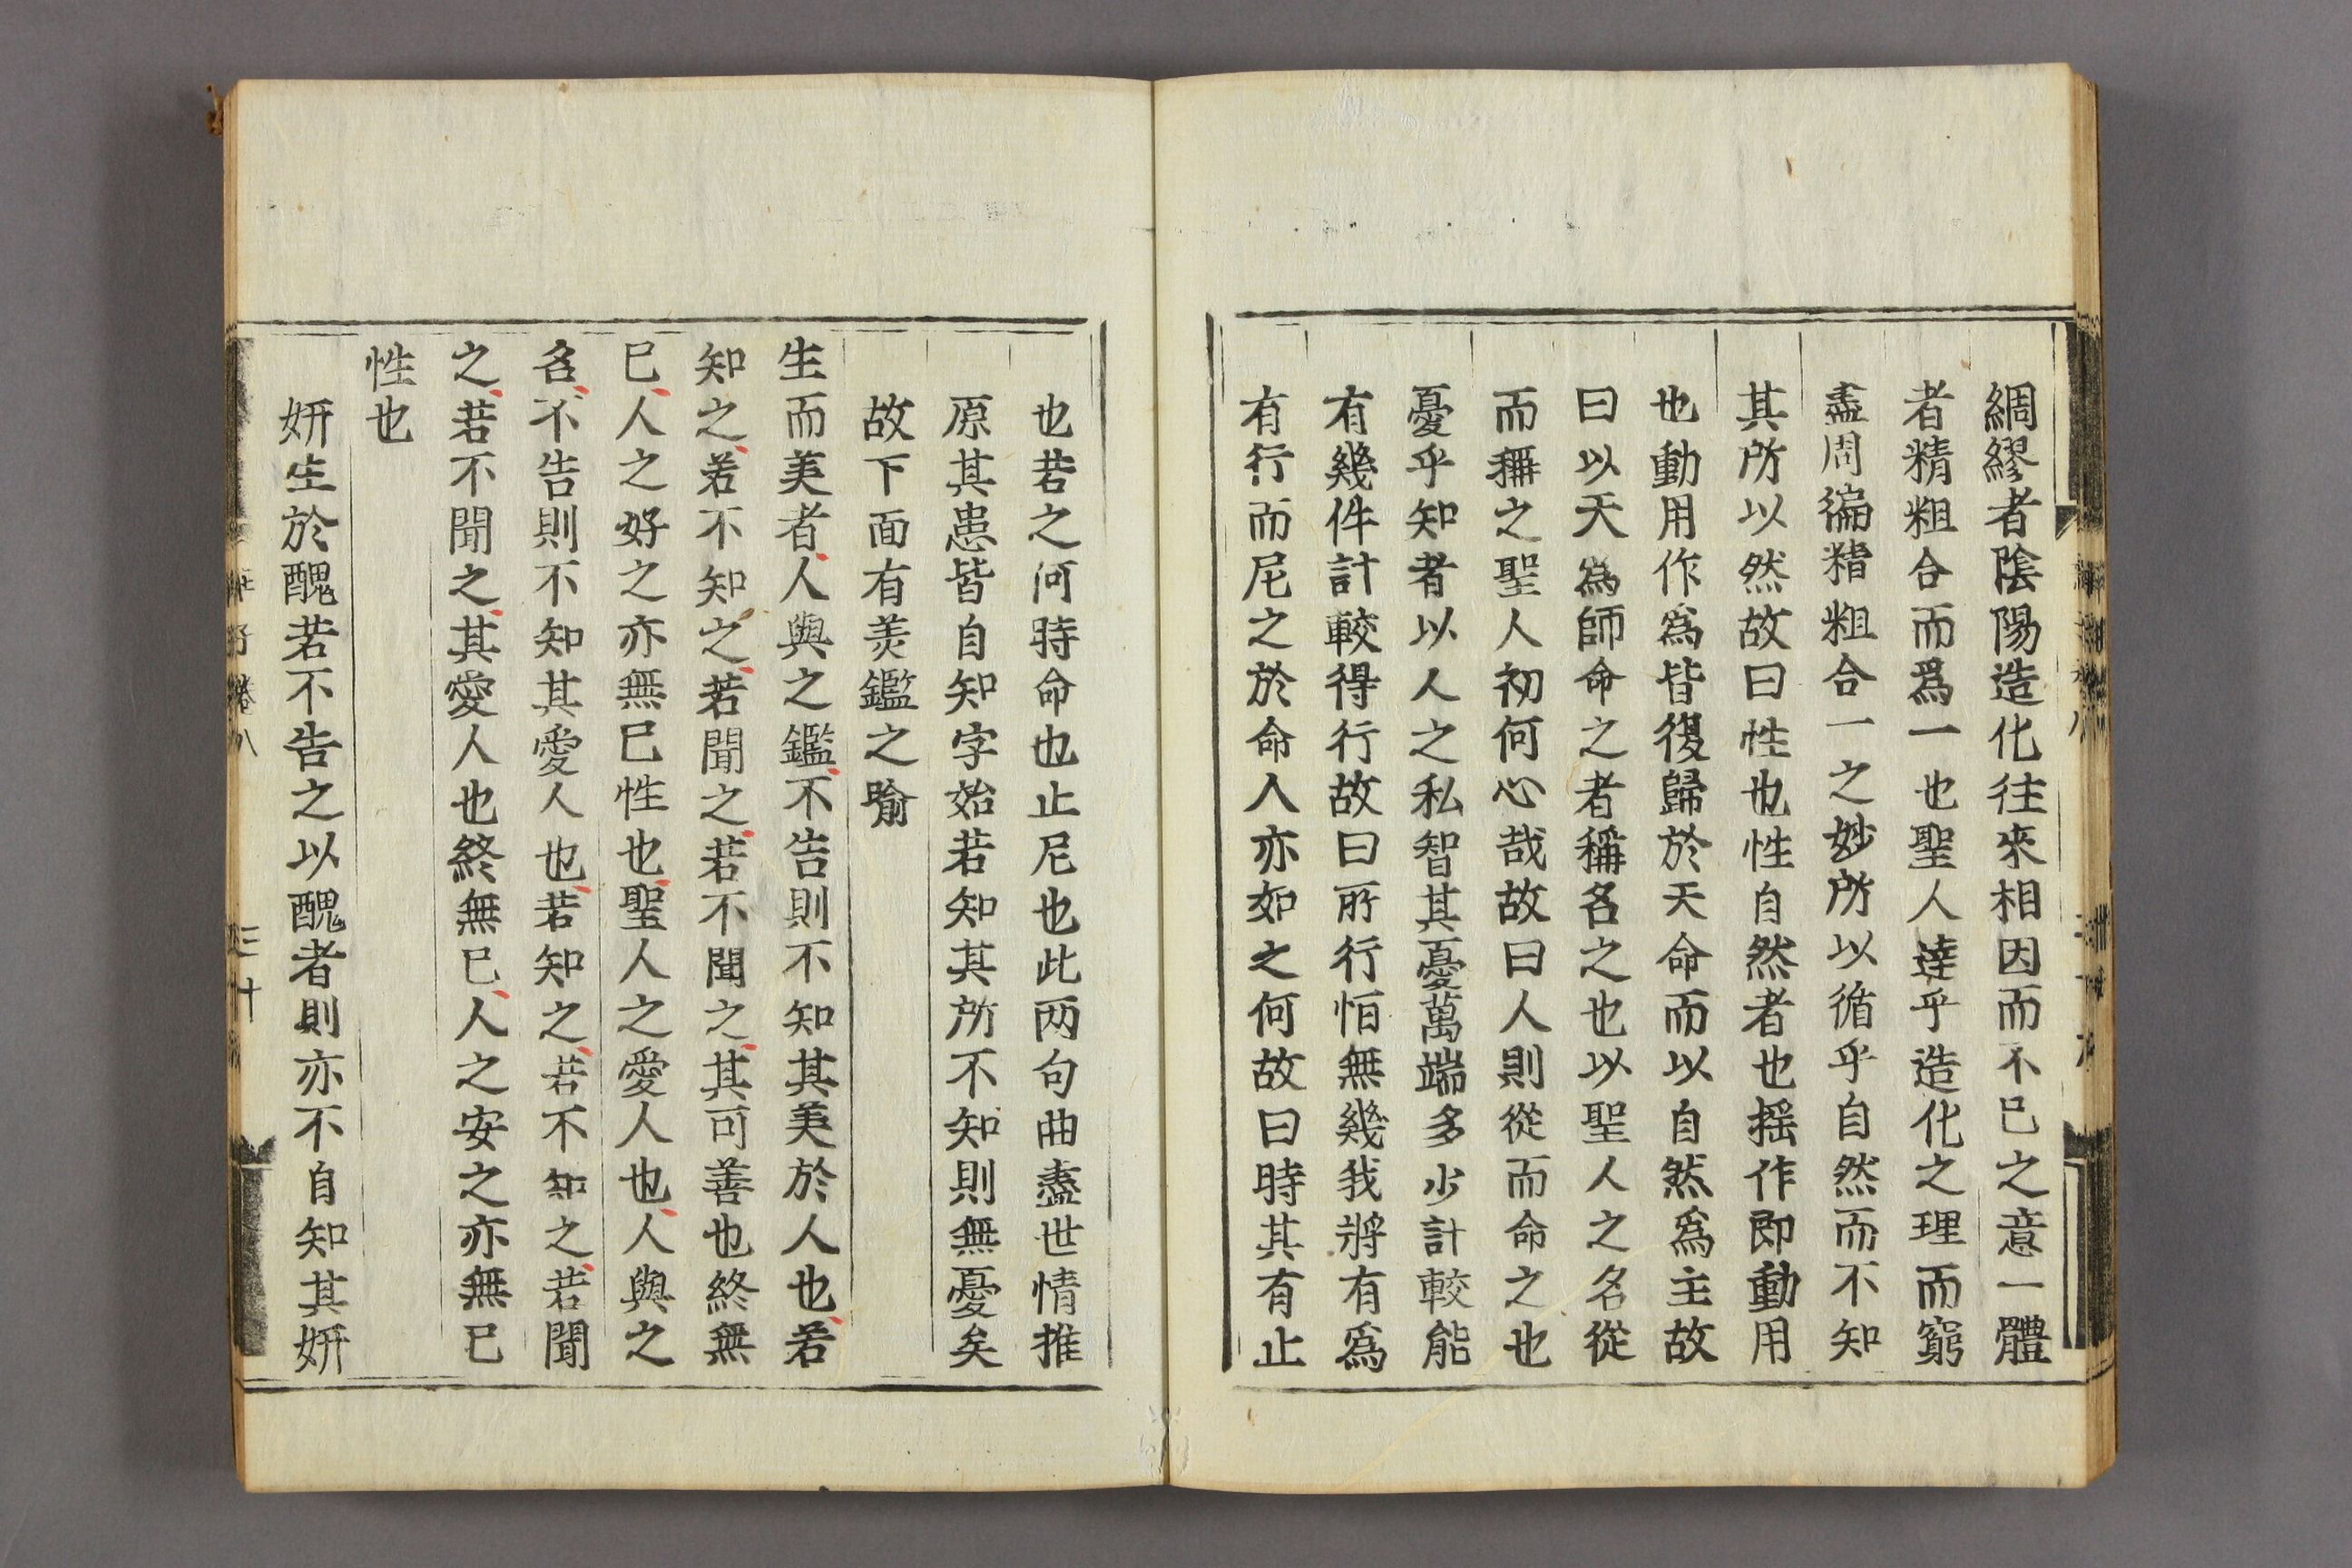 綢繆者陰陽造化往來相因而不已之意一體
者精粗合而爲一也聖人達乎造化之理而窮
盡周徧精粗合一之妙所以循乎自然而不知
其所以然故曰性也性自然者也揺作即動用
也動用作爲皆復歸於天命而以自然爲主故
曰以天爲師命之者稱名之也以聖人之名從
而稱之聖人初何心哉故曰人則從而命之也
憂乎知者以人之私智其憂萬端多少計較能
有幾件計較得行故曰所行恒無幾我將有爲
有行而尼之於命人亦如之何故曰時其有止
也若之何時命也止尼也此两句曲盡世情推
原其患皆自知字始若知其所不知則無憂矣
故下面有羙鑑之喻
生而美者人與之鑑不告則不知其美於人也若
知之若不知之若聞之若不聞之其可善也終無
已人之好之亦無已性也聖人之愛人也人與之
名不告則不知其愛人也若知之若不知之若聞
之若不聞之其愛人也終無已人之安之亦無已
性也
妍生於醜若不告之以醜者則亦不自知其妍